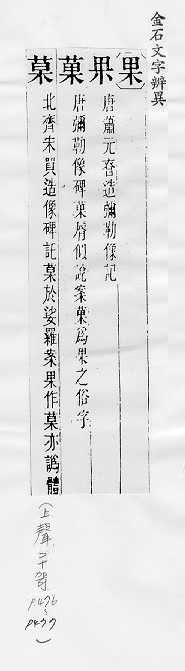 金石文字辨異
果
唐蕭元眘造彌勒像記
菓 唐彌勒像碑菓脣似說案菓為果之俗字
北齊宋買造像碑託於娑羅案果作亦譌體
(上聲二十哿 P476~P477)